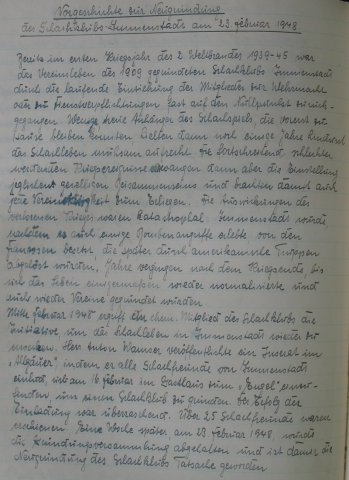 Vorgeschichte zur Neugründung
des Schachklubs Immenstadt am 23. Februar 1948
Bereits im ersten Kriegsjahr des 2. Weltbrandes 1939-45 war
das Vereinsleben des 1909 gegründeten Schachklubs Immenstadt
durch die laufende Einziehung der Mitglieder zur Wehrmacht
oder zu Dienstverpflichtungen fast auf den Nullpunkt zurück-
gegangen. Wenige treue Anhänger des Schachspiels, die vorerst zu
Hause bleiben konnten hielten dann noch einige Jahre hindurch
das Schachleben mühsam aufrecht. Die fortschreitend schlechter
werdenden Kriegsereignisse zwangen dann aber die Einstellung
jeglichen geselligen Beisammenseins und brachten damit auch
jede Vereinstätigkeit zum Erliegen. Die Auswirkungen des
verlorenen Krieges waren katastrophal. Immenstadt wurde
nachdem es auch einige Bombenangriffe erlebte von den
Franzosen besetzt die später durch amerikanische Truppen
abgelöst wurden. Jahre vergingen nach dem Kriegsende bis
sich das Leben einigermaßen wieder normalisierte und
auch wieder Vereine gegründet wurden
Mitte Februar 1948 ergriff ein ehem. Mitglied des Schachklubs die
Initiative um das Schachleben in Immenstadt wieder zu
Herr Anton Wanner veröffentlichte ein Inserat im
„Allgäuer", indem er alle Schachfreunde von Immenstadt
einlud, sich am 16. Februar im Gasthaus zum „Engel" einzu-
finden, um einen Schachklub zu gründen. Der Erfolg der
Einladung war überraschend. Über 25 Schachfreunde waren
erschienen. Eine Woche später, am 23. Februar 1948, wurde
die Gründungsversammlung abgehalten und ist damit die
Neugründung des Schachklubs Tatsache geworden